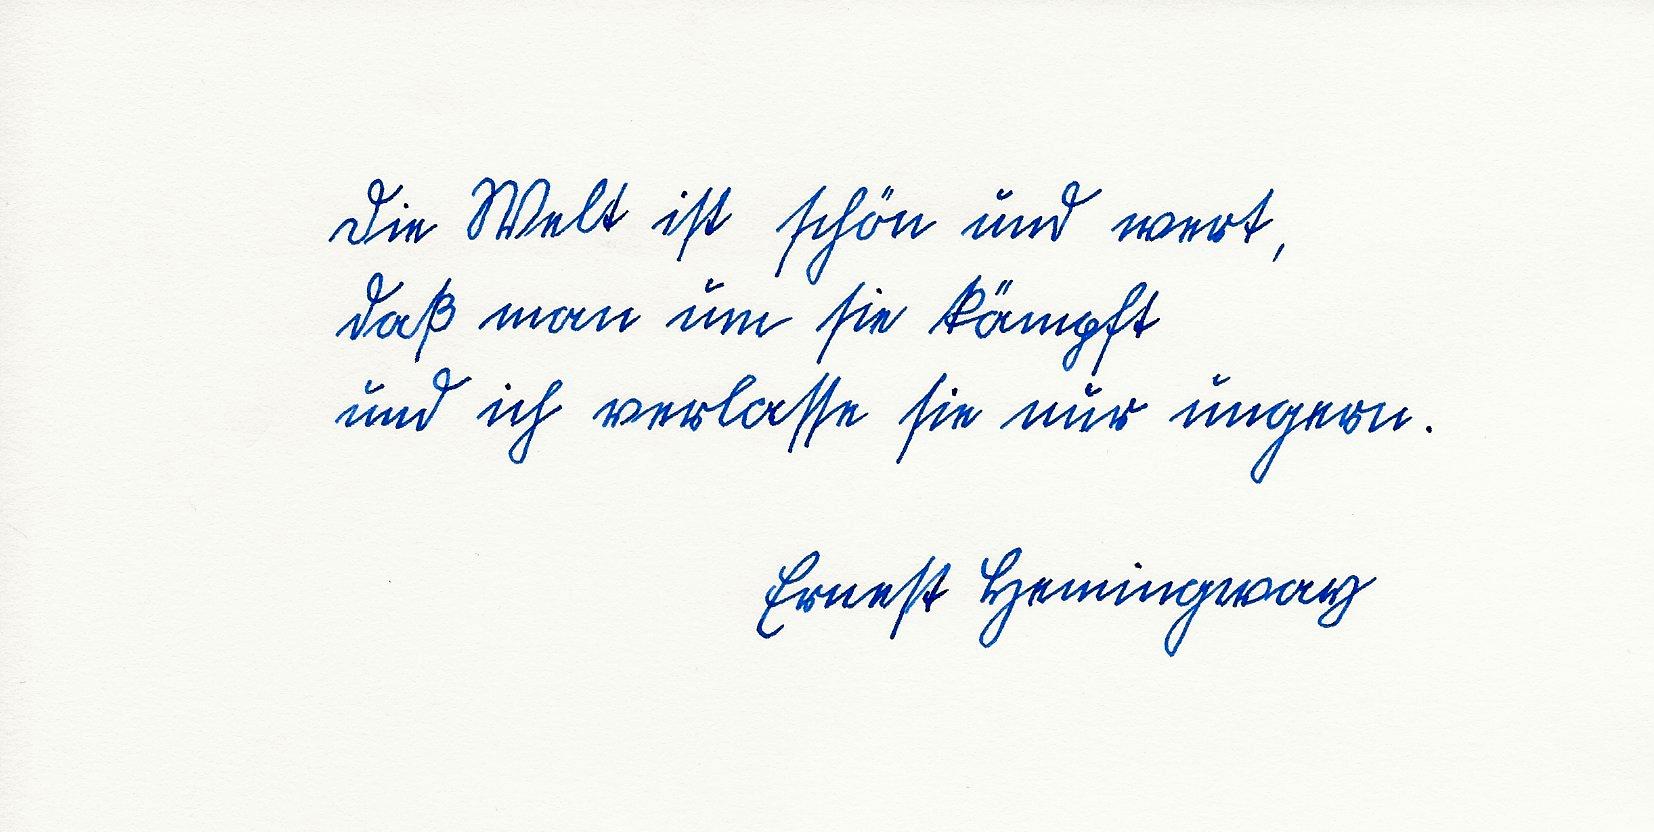 Die Welt ist schön und wert,
daß man um sie kämpft
und ich verlasse sie nur ungern.
Ernest Hemingway